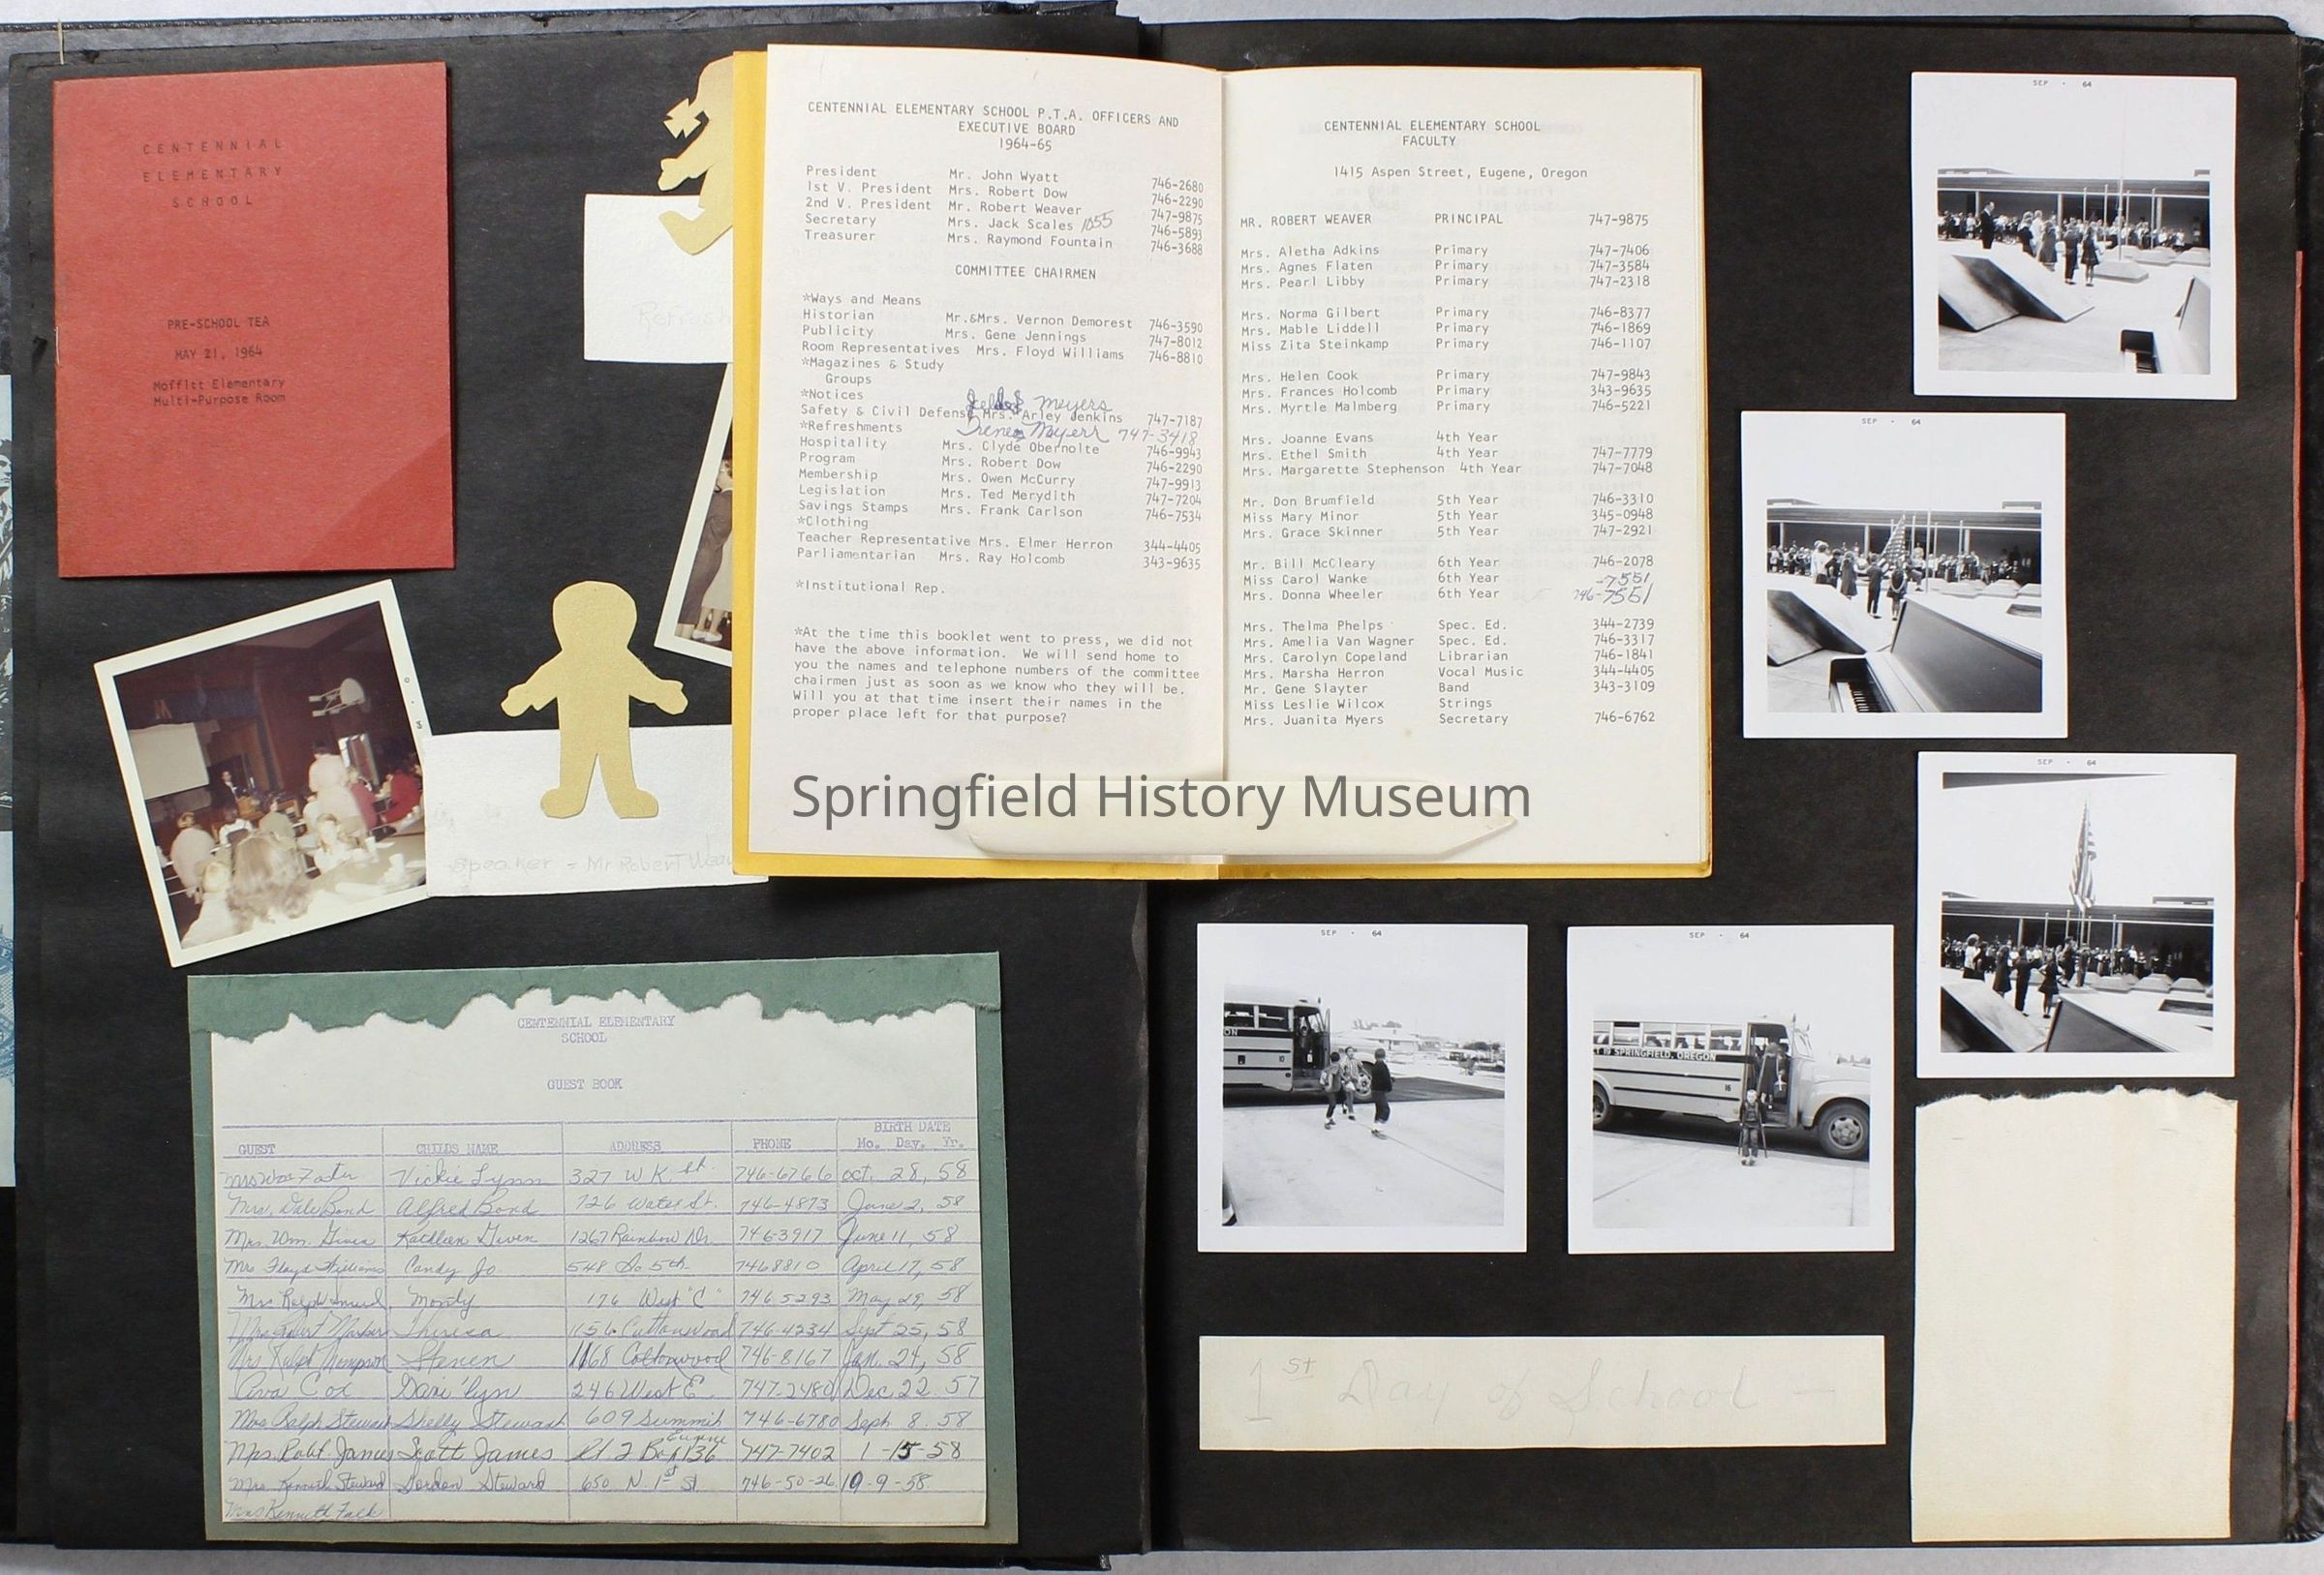 CENTENNIAL
ELEMENTARY
SCHOOL
PRE-SCHOOL TEA
MAY 21, 1964
Moffitt Elementary
Multi-Purpose Room
Speaker - Mr Robert
CENTENNIAL ELEMENTARY SCHOOL P.T.A. OFFICERS AND
EXECUTIVE BOARD
1964-65
President Mr. John Wyatt 746-2680
1st V. President Mrs. Robert Dow 746-2290
2nd V. President Mr. Robert Weaver 747-9875
Secretary Mrs. Jack Scales 1055 746-5893
Treasurer Mrs. Raymond Fountain 746-3688
COMMITTEE CHAIRMEN
*Ways and Means
Historian Mr.&Mrs. Vernon Demorest 746-3590
Publicity Mrs. Gene Jennings 747-8012
Room Representatives Mrs. Floyd Williams 746-8810
*Magazines & Study
Groups
*Notices Meyers
Safety & Civil Defense Mrs. Arley Jenkins 747-7187
*Refreshments Irene 747-3418
Hospitality Mrs. Clyde Obernolte 746-9943
Program Mrs. Robert Dow 746-2290
Membership Mrs. Owen McCurry 747-9913
Legislation Mrs. Ted Merydith 747-7204
Savings Stamps Mrs. Frank Carlson 746-7534
*Clothing
Teacher Representative Mrs. Elmer Herron 344-4405
Parliamentarian Mrs. Ray Holcomb 343-9635
*Institutional Rep.
*At the time this booklet went to press, we did not
have the above information. We will send home to
you the names and telephone numbers of the committee
chairmen just as soon as we know who they will be.
Will you at that time insert their names in the
proper place left for that purpose?
CENTENNIAL ELEMENTARY SCHOOL
FACULTY
1415 Aspen Street, Eugene, Oregon
MR. ROBERT WEAVER PRINCIPAL 747-9875
Mrs. Aletha Adkins Primary 747-7406
Mrs. Agnes Flaten Primary 747-3584
Mrs. Pearl Libby Primary 747-2318
Mrs. Norma Gilbert Primary 746-8377
Mrs. Mable Liddell Primary 746-1869
Miss Zita Steinkamp Primary 746-1107
Mrs. Helen Cook Primary 747-9843
Mrs. Frances Holcomb Primary 343-9635
Mrs. Myrtle Malmberg Primary 746-5221
Mrs. Joanne Evans 4th Year
Mrs. Ethel Smith 4th Year 747-7779
Mrs. Margarette Stephenson 4th Year 747-7048
Mr. Don Brumfield 5th Year 746-3310
Miss Mary Minor 5th Year 345-0948
Mrs. Grace Skinner 5th Year 747-2921
Mr. Bill McCleary 6th Year 746-2078
Miss Carol Wanke 6th Year -7551
Mrs. Donna Wheeler 6th Year 746-7551
Mrs. Thelma Phelps Spec. Ed. 344-2739
Mrs. Amelia Van Wagner Spec. Ed. 746-3317
Mrs. Carolyn Copeland Librarian 746-1841
Mrs. Marsha Herron Vocal Music 344-4405
Mr. Gene Slayter Band 343-3109
Miss Leslie Wilcox Strings
Mrs. Juanita Myers Secretary 746-6762
Springfield History Museum
SEP · 64
SEP · 64
SEP · 64
SEP · 64
SEP · 64
ON
10
SPRINGFIELD, OREGON
16
1st Day of School -
CENTENNIAL ELEMENTARY
SCHOOL
GUEST BOOK
BIRTH DATE
GUEST CHILDS NAME ADDRESS PHONE Mo. Day. Yr.
Vickie Lynn 327 W K st. 746-6766 Oct. 28, 58
Mrs. Dale Bond Alfred Bond 726 Water St. 746-4873 June 2, 58
Mrs. Wm. Given Kathleen Given 1267 Rainbow Dr. 746-3917 June 11, 58
Mrs Floyd Williams Candy Jo 548 So 5th 746 8810 April 17, 58
Mrs Ralph Monty 176 West "C" 746 5293 May 29, 58
Mrs Robert Theresa 1156 Cottonwood 746-4234 Sept 25, 58
Mrs Ralph Thompson Steven 1168 Cottonwood 746-8167 Jan. 24, 58
Ava Cox Dari'lyn 246 West E. 747-2480 Dec 22 57
Mrs Ralph Stewart Shelly Stewart 609 Summit 746-6780 Sept 8. 58
Mrs. Robt. James Scott James Rt 2 Box 136 Eugene 747-7402 1-15-58
Mrs. Kenneth Steward Gordon Steward 650 N. 1st St 746-50-26 10-9-58
Mrs Kenneth Falk